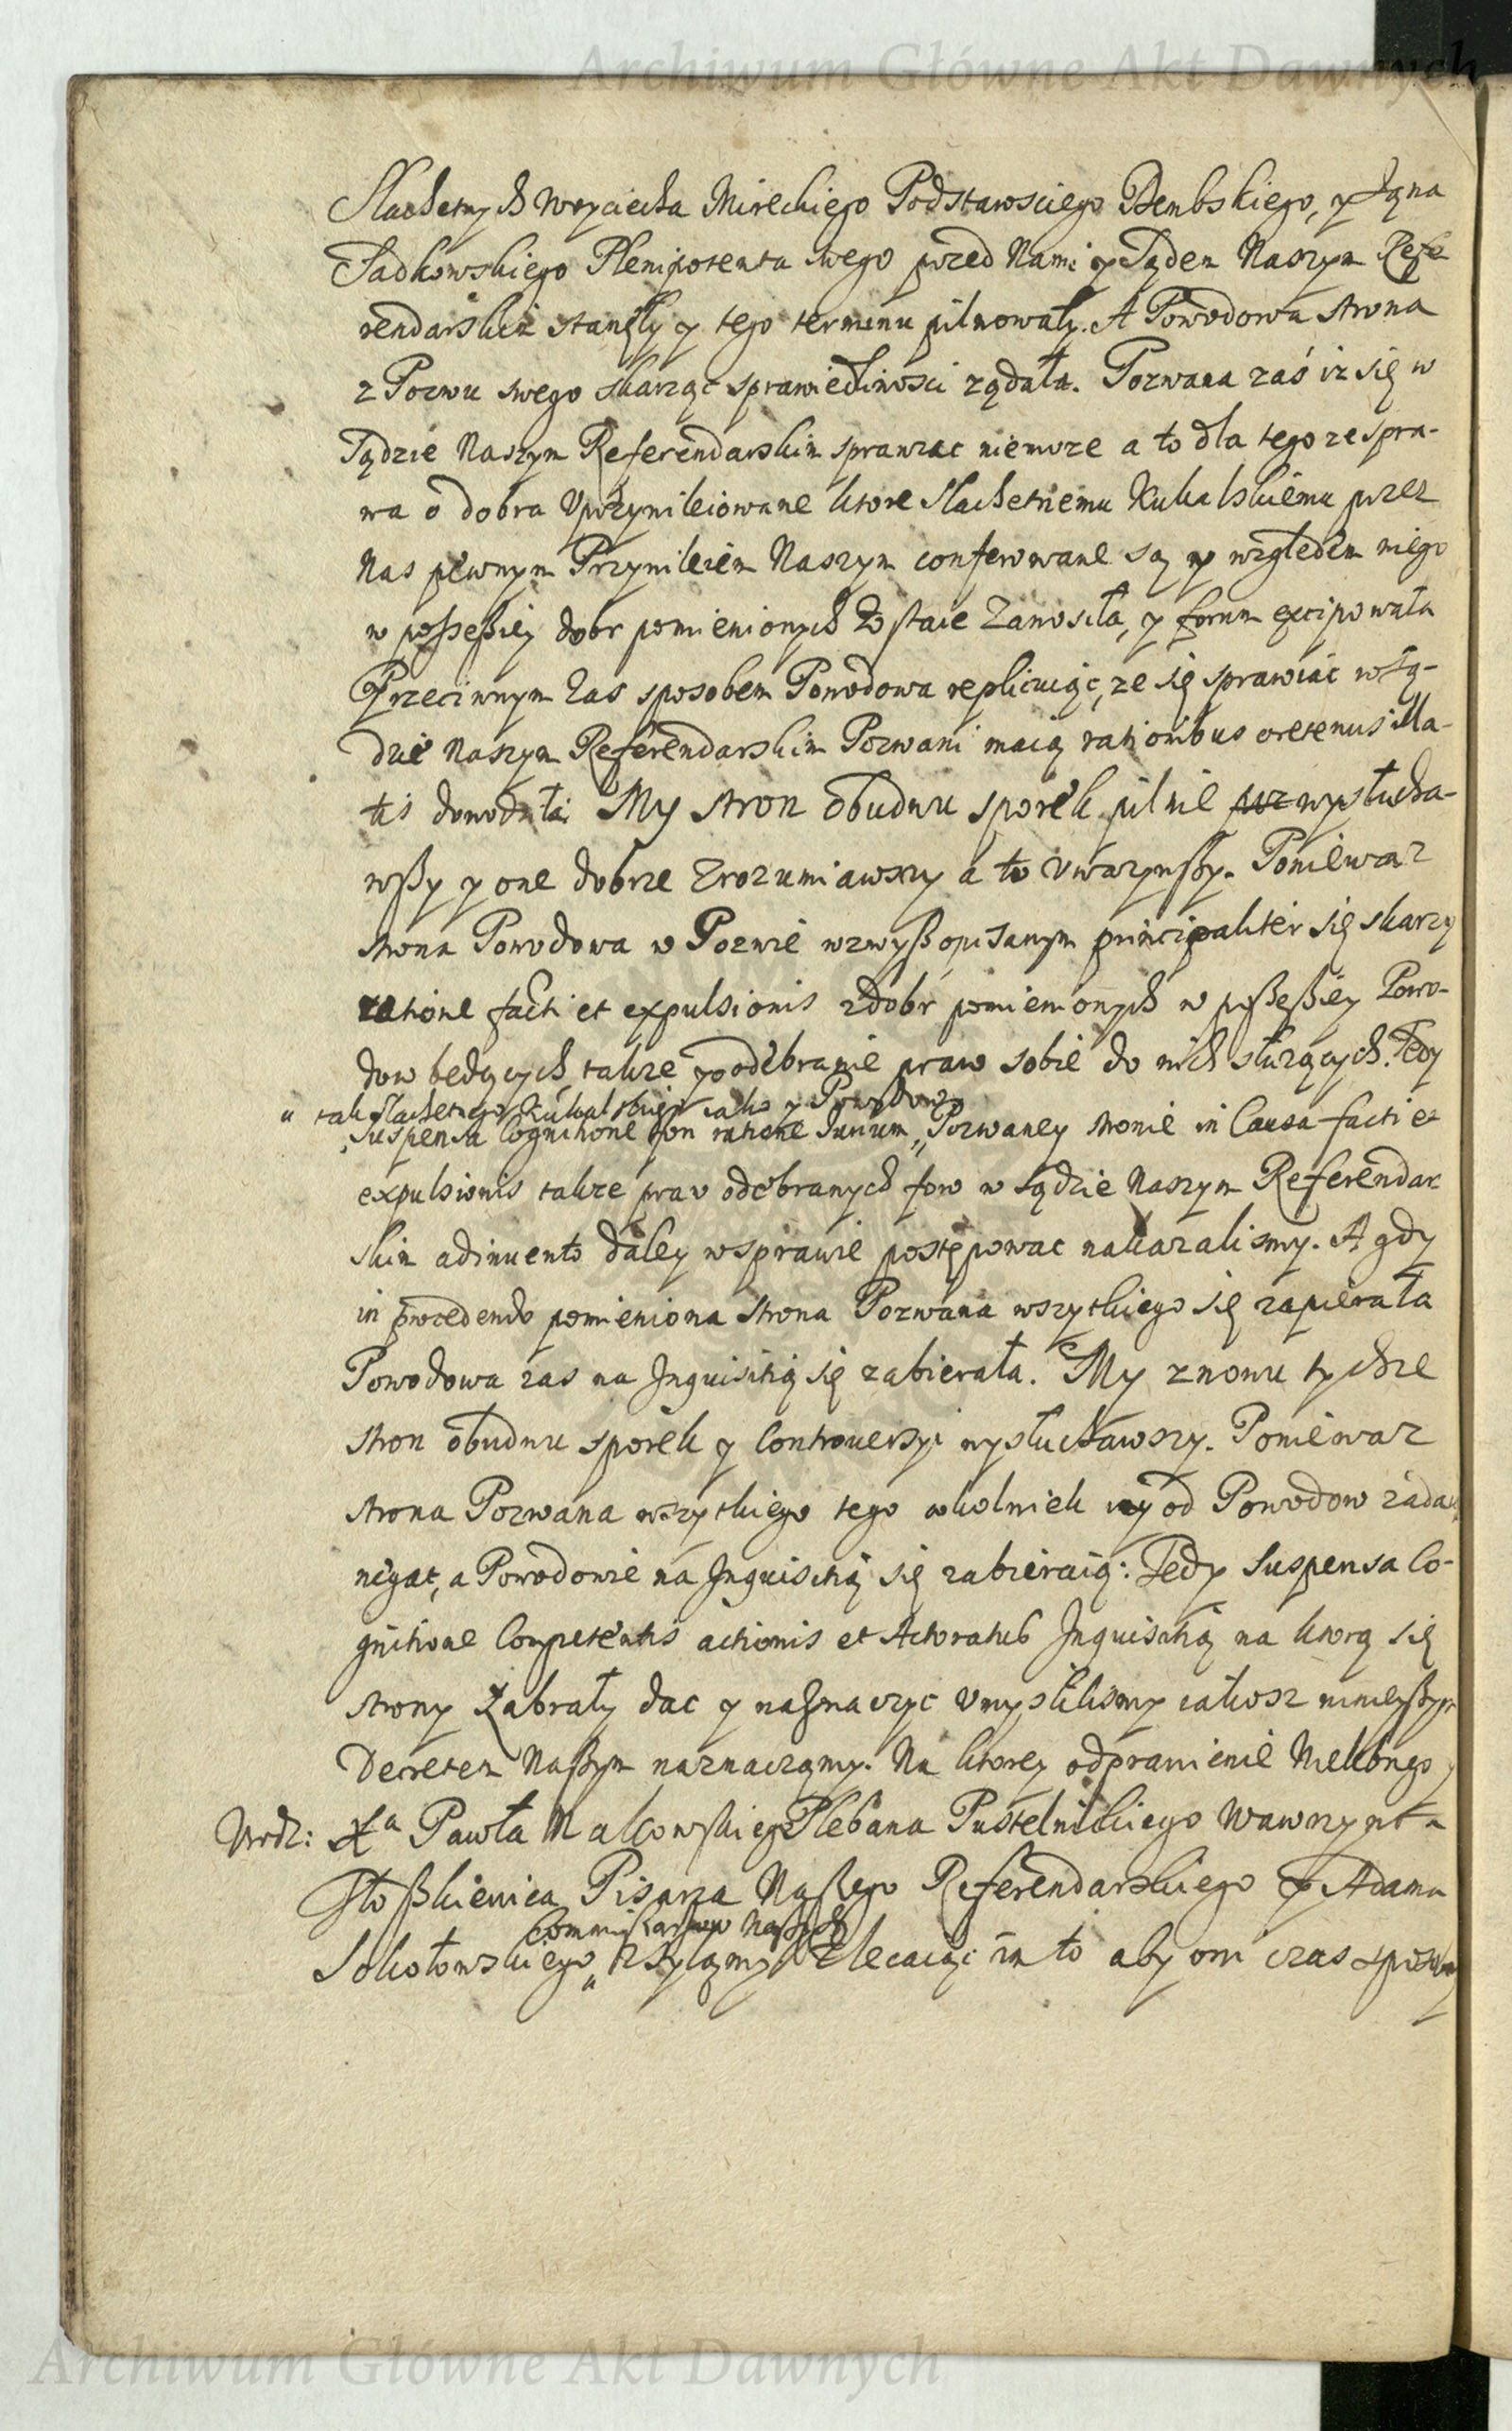 Archiwum Główne Akt Dawnych
Slachetnych Woyciecha Mireckiego Podstarosciego Dembskiego, y Jana
Sadkowskiego Plenipotenta swego przed Nami y Sądem Naszym Refe
rendarskim stanęły y tego terminu pilnowały. A Powodowa strona
z Pozwu swego skarząc sprawiedliwosci ządała. Pozwana zaś iz się w
Sądzie Naszym Referendarskim sprawiac niemoze a to dla tego ze spra-
wa o dobra Uprzywileiowane ktore Slachetnemu Kukalskiemu przez
Nas pewnym Przywileiem Naszym conferowane są y względem niego
w possessiey dobr pomienionych zostaie Zanosiła, y forum excipowała
Przeciwnym Zas sposobem Powodowa replicuiąc, ze się sprawiac w Są-
dzie Naszym Referendarskim Pozwani maią rationibus oretenus illa-
tis dowodziła: My stron obudwu sporek pilnie wysłucha-
wszy y one dobrze Zrozumiawszy a to Uwazywszy. Poniewaz
strona Powodowa w Pozwie wzwyss opisanym principaliter się skarzy
ratione facti et expulsionis z dobr pomienionych w possessiey Powo-
dow będących, takze y o odebranie praw sobie do nich słuzących. Tedy
" tak Slachetnego Kukalskiego iako y Powodow
suspensa Cognitione ratione Jurium „ Pozwaney stronie in Causa facti et
expulsionis takze praw odebranych w Sądzie Naszym Referendar
skim adinvento daley w sprawie postępowac nakazalismy. A gdy
in procedendo pomieniona strona Pozwana wszytkiego się zapierała
Powodowa zas na Inquisitią się zabierała. My znowu tychze
stron obudwu sporek y Controversyi wysłuchawszy. Poniewaz
strona Pozwana wszytkiego tego cokolwiek iey od Powodow zadan
negat, a Powodowie na Inquisitią się zabieraią: Tedy Suspensa Co-
gnitione Competentis actionis et Actoratus Inquisitią na ktorą się
strony Zabrały dac y naznaczyc Umyslilismy iakosz ninieyszym
Decretem Naszym naznaczamy. Na ktorey odprawienie Wielebnego
Urodz: Xa Pawła Malkowskiego Plebana Pustelnickiego Wawrzynca
Stoszkiewica Pisarza Naszego Referendarskiego y Adama
Commissarzow Naszych
Sokołowskiego „ zsyłamy Zlecaiąc im to aby oni czas sposobny
Archiwum Główne Akt Dawnych